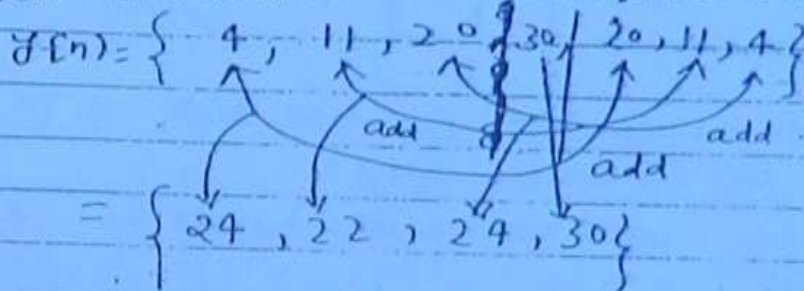 y[n) = { 4, 11, 20, 30, 20, 11, 4 }
add add
add
= { 24, 22, 24, 30 }